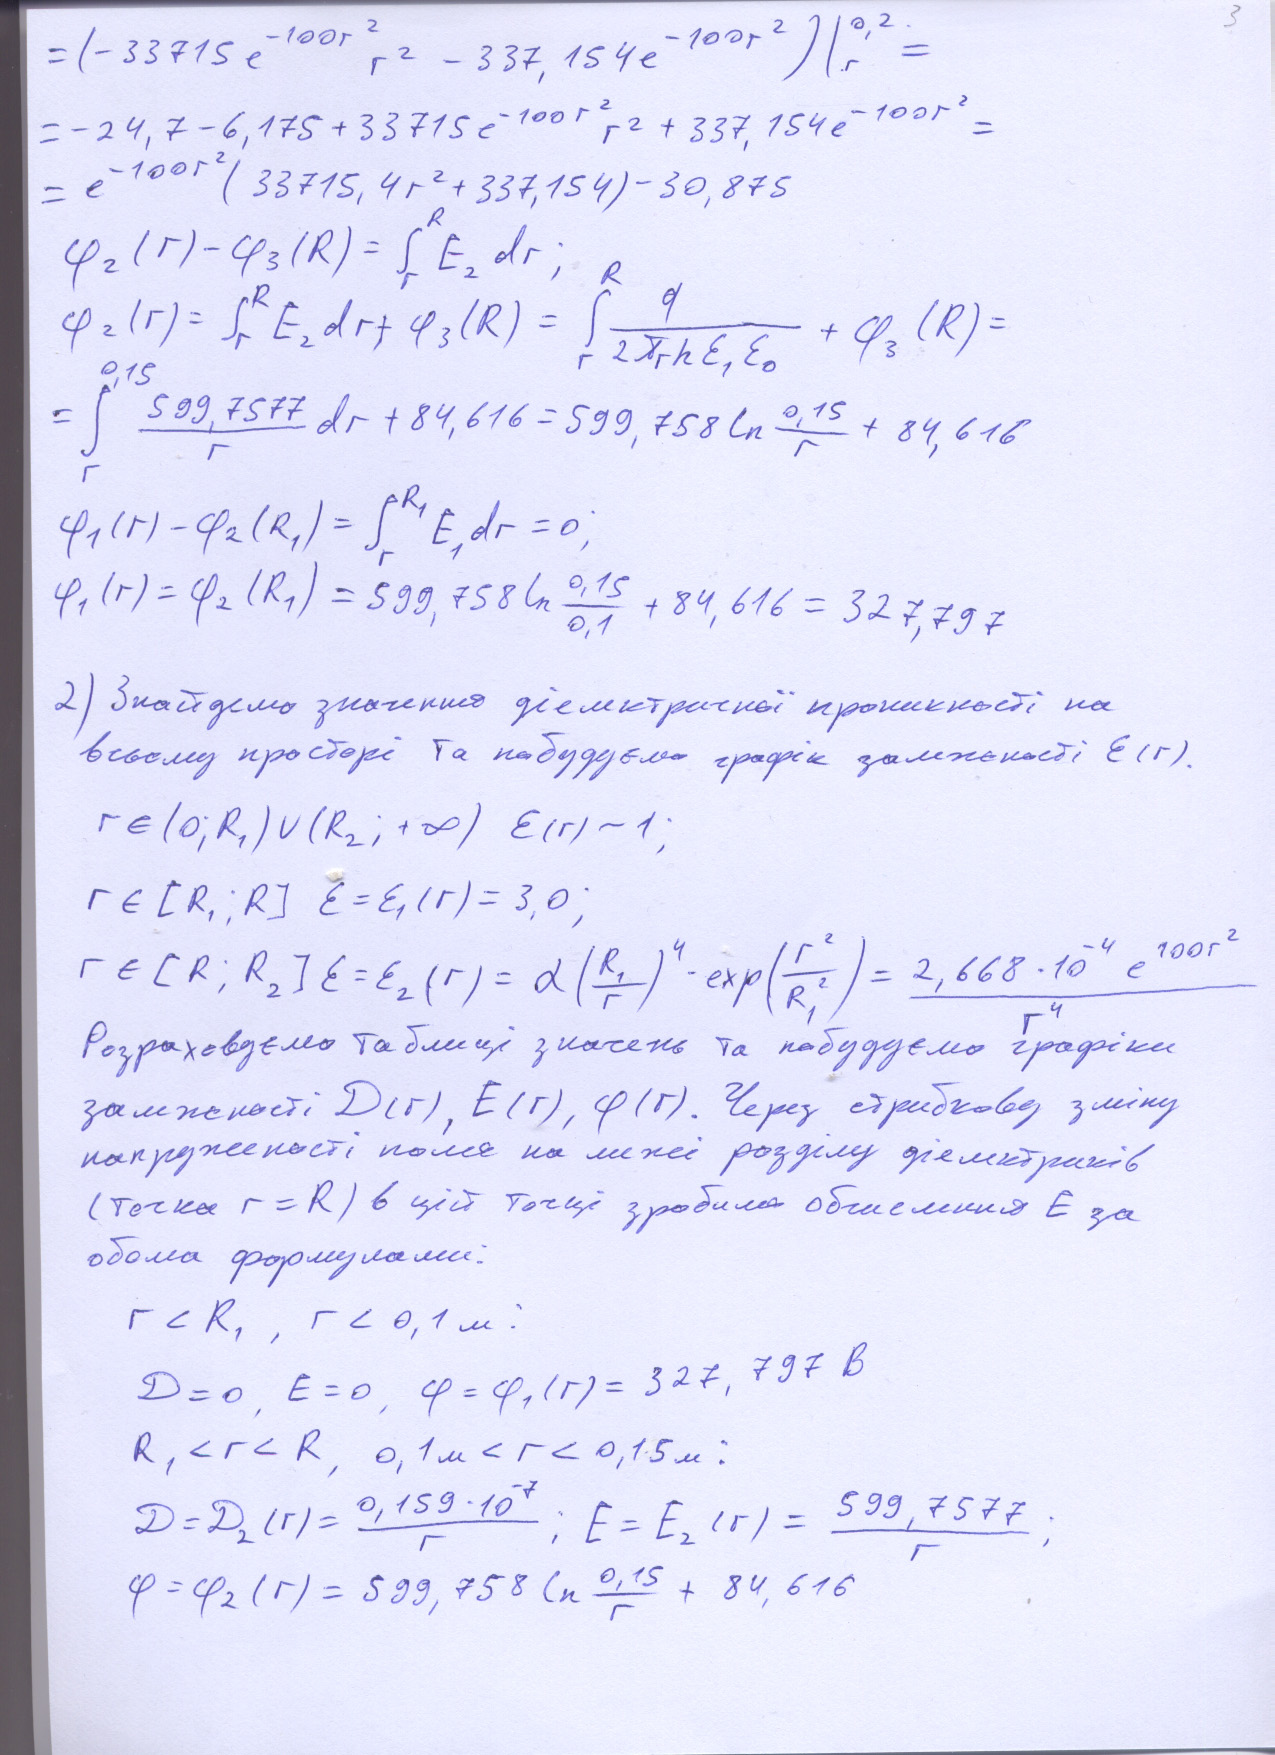 3
= (-33715 e^{-100r^2} r^2 - 337,154 e^{-100r^2})|_r^{0,2} =
= -24,7 - 6,175 + 33715 e^{-100r^2} r^2 + 337,154 e^{-100r^2} =
= e^{-100r^2} (33715,4 r^2 + 337,154) - 30,875
φ_2(r) - φ_3(R) = ∫_r^R E_2 dr;
φ_2(r) = ∫_r^R E_2 dr + φ_3(R) = ∫_r^R q/(2πrhε_1ε_0) + φ_3(R) =
= ∫_r^{0,15} 599,7577/r dr + 84,616 = 599,758 ln 0,15/r + 84,616
φ_1(r) - φ_2(R_1) = ∫_r^{R_1} E_1 dr = 0;
φ_1(r) = φ_2(R_1) = 599,758 ln 0,15/0,1 + 84,616 = 327,797
2) Знайдемо значення діелектричної проникності на
всьому просторі та побудуємо графік залежності ε(r).
r ∈ (0; R_1) ∪ (R_2; +∞) ε(r) ~ 1;
r ∈ [R_1; R] ε = ε_1(r) = 3,0;
r ∈ [R; R_2] ε = ε_2(r) = α(R_1/r)^4 · exp(r^2/R_1^2) = 2,668·10^{-4} e^{100r^2}/r^4
Розраховуємо таблиці значень та побудуємо графіки
залежності D(r), E(r), φ(r). Через стрибкову зміну
напруженості поля на межі розділу діелектриків
(точка r = R) в цій точці зробимо обчислення E за
обома формулами:
r < R_1, r < 0,1 м:
D = 0, E = 0, φ = φ_1(r) = 327,797 В
R_1 < r < R, 0,1 м < r < 0,15 м:
D = D_2(r) = 0,159·10^{-7}/r; E = E_2(r) = 599,7577/r;
φ = φ_2(r) = 599,758 ln 0,15/r + 84,616